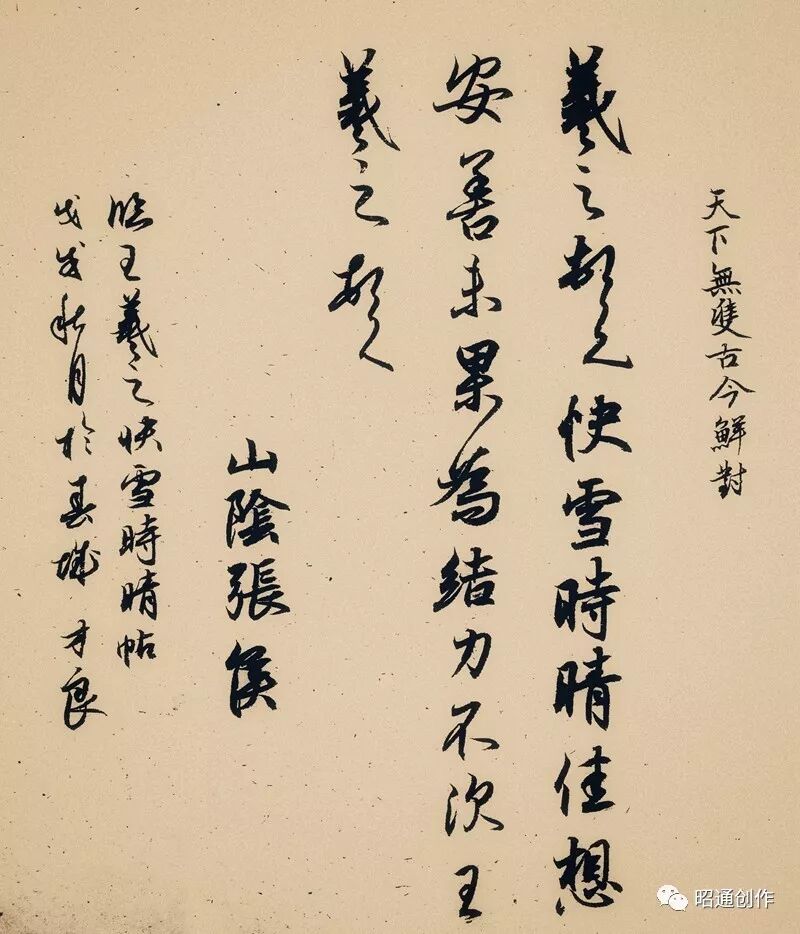 天下無雙古今鮮對
羲之頓首快雪時晴佳想
安善未果為結力不次王
羲之頓首
山陰張侯
臨王羲之快雪時晴帖
戊戌秋月於春城 才良
昭通创作